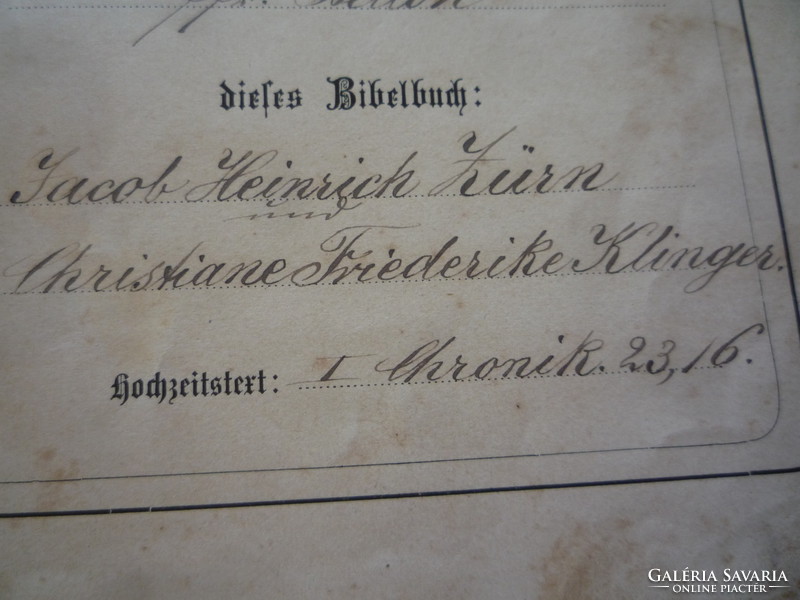 dieses Bibelbuch:
Jacob Heinrich Zürn
und
Christiane Friederike Klinger.
Hochzeitstext: I Chronik. 23,16.
GALÉRIA SAVARIA
ONLINE PIACTÉR